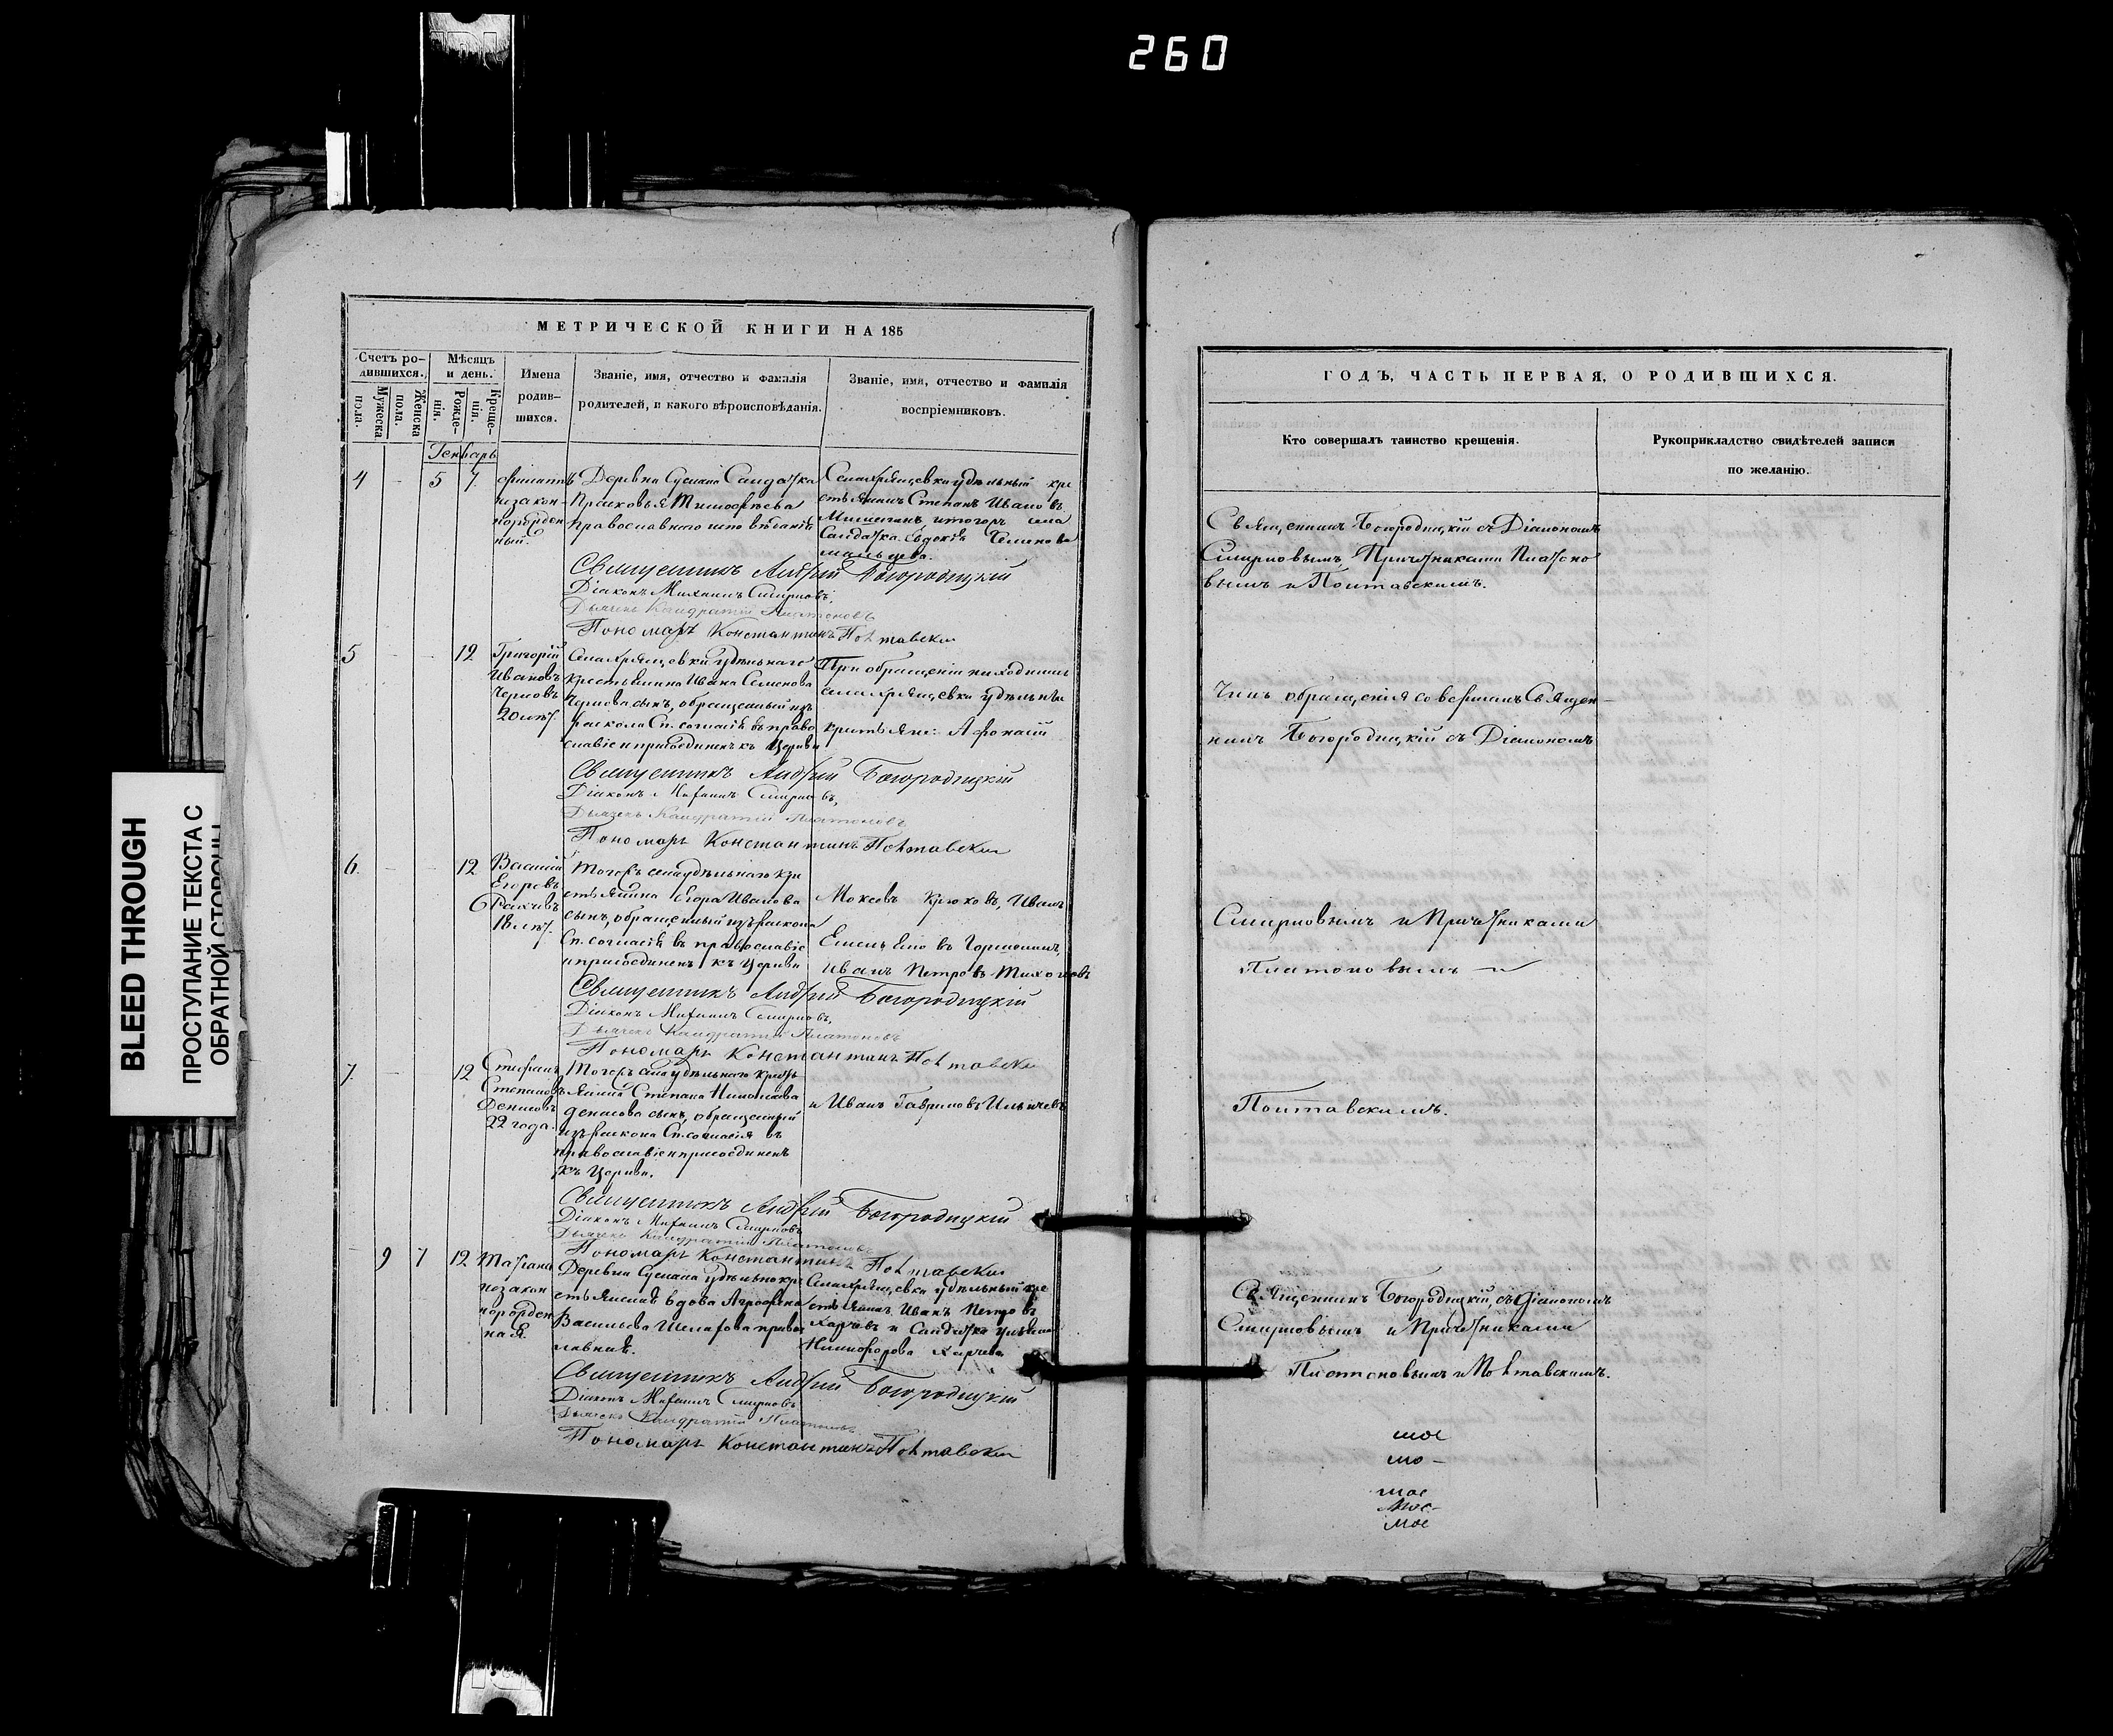 260
МЕТРИЧЕСКОЙ КНИГИ НА 185
Счетъ ро-
дившихся.
Мужеска
пола.
Женска
пола.
Мѣсяцъ
и день.
Рожде-
нія.
Креще-
нія.
Имена
родив-
шихся.
Званіе, имя, отчество и фамилія
родителей, и какого вѣроисповѣданія.
Званіе, имя, отчество и фамилія
воспріемниковъ.
Генварь
4 - 5 7
незакон-
норожден
ный.
Деревни Сускана
православнаго исповѣданія
крестьянинъ Степанъ Ивановъ
Евдокія Семенова
Священникъ Андрей Богородицкій
Діаконъ Михаилъ Смирновъ,
Дьячекъ Кандратій Платоновъ
Пономарь Константинъ Полтавски
5 - - 12
Григорій
Ивановъ
Черновъ
20 лѣт.
Села Хрящевки удѣльнаго
крестьянина Ивана Семенова
Чернова сынъ, обращенный изъ
раскола Сп. согласія въ право
славіе и присоединенъ къ Церкви
При обращеніи находились
села Хрящевки удѣльные
крестьяне: Афонасій
Священникъ Андрей Богородицкій
Діаконъ Михаилъ Смирновъ,
Дьячекъ Кандратій Платоновъ
Пономарь Константинъ Полтавски
6. - - 12
Василій
Егоровъ
18 лѣт.
Тогожъ села удѣльнаго кре
стьянина Егора Иванова
сынъ, обращенный изъ раскола
Сп. согласія въ православіе
и присоединенъ къ Церкви
Крюковъ, Иванъ
Иванъ Петровъ Тихоновъ
Священникъ Андрей Богородицкій
Діаконъ Михаилъ Смирновъ,
Дьячекъ Кандратій Платоновъ
Пономарь Константинъ Полтавски
7. - - 12
Стефанъ
Степановъ
Денисовъ
22 года.
Тогожъ села удѣльнаго кресть
янина Степана Николаева
Денисова сынъ, обращенный
изъ раскола Сп. согласія въ
православіе и присоединенъ
къ Церкви.
и Иванъ Гавриловъ Ильичевъ
Священникъ Андрей Богородицкій
Діаконъ Михаилъ Смирновъ
Дьячекъ Кандратій Платоновъ
Пономарь Константинъ Полтавски
- 9 7 12
Татіана
незакон
норожден
ная.
Деревни Сускана удѣльно кре
стьянская вдова Агрофена
Васильева
Села Хрящевки удѣльный кре
стьянинъ Иванъ Петровъ
Никифорова
Священникъ Андрей Богородицкій
Діаконъ Михаилъ Смирновъ
Дьячекъ Кандратій Платоновъ
Пономарь Константинъ Полтавски
ГОДЪ, ЧАСТЬ ПЕРВАЯ, О РОДИВШИХСЯ.
Кто совершалъ таинство крещенія.
Рукоприкладство свидѣтелей записи
по желанію.
Священникъ Богородицкій съ Діакономъ
Смирновымъ Причетниками Платоно
вымъ и Полтавскимъ.
Чинъ обращенія совершалъ Священ-
никъ Богородицкій съ Діакономъ
Смирновымъ и Причетниками
Платоновымъ и
Полтавскимъ.
Священникъ Богородицкій, съ Діакономъ
Смирновымъ и Причетниками
Платоновымъ и Полтавскимъ.
BLEED THROUGH
ПРОСТУПАНИЕ ТЕКСТА С
ОБРАТНОЙ СТОРОНЫ